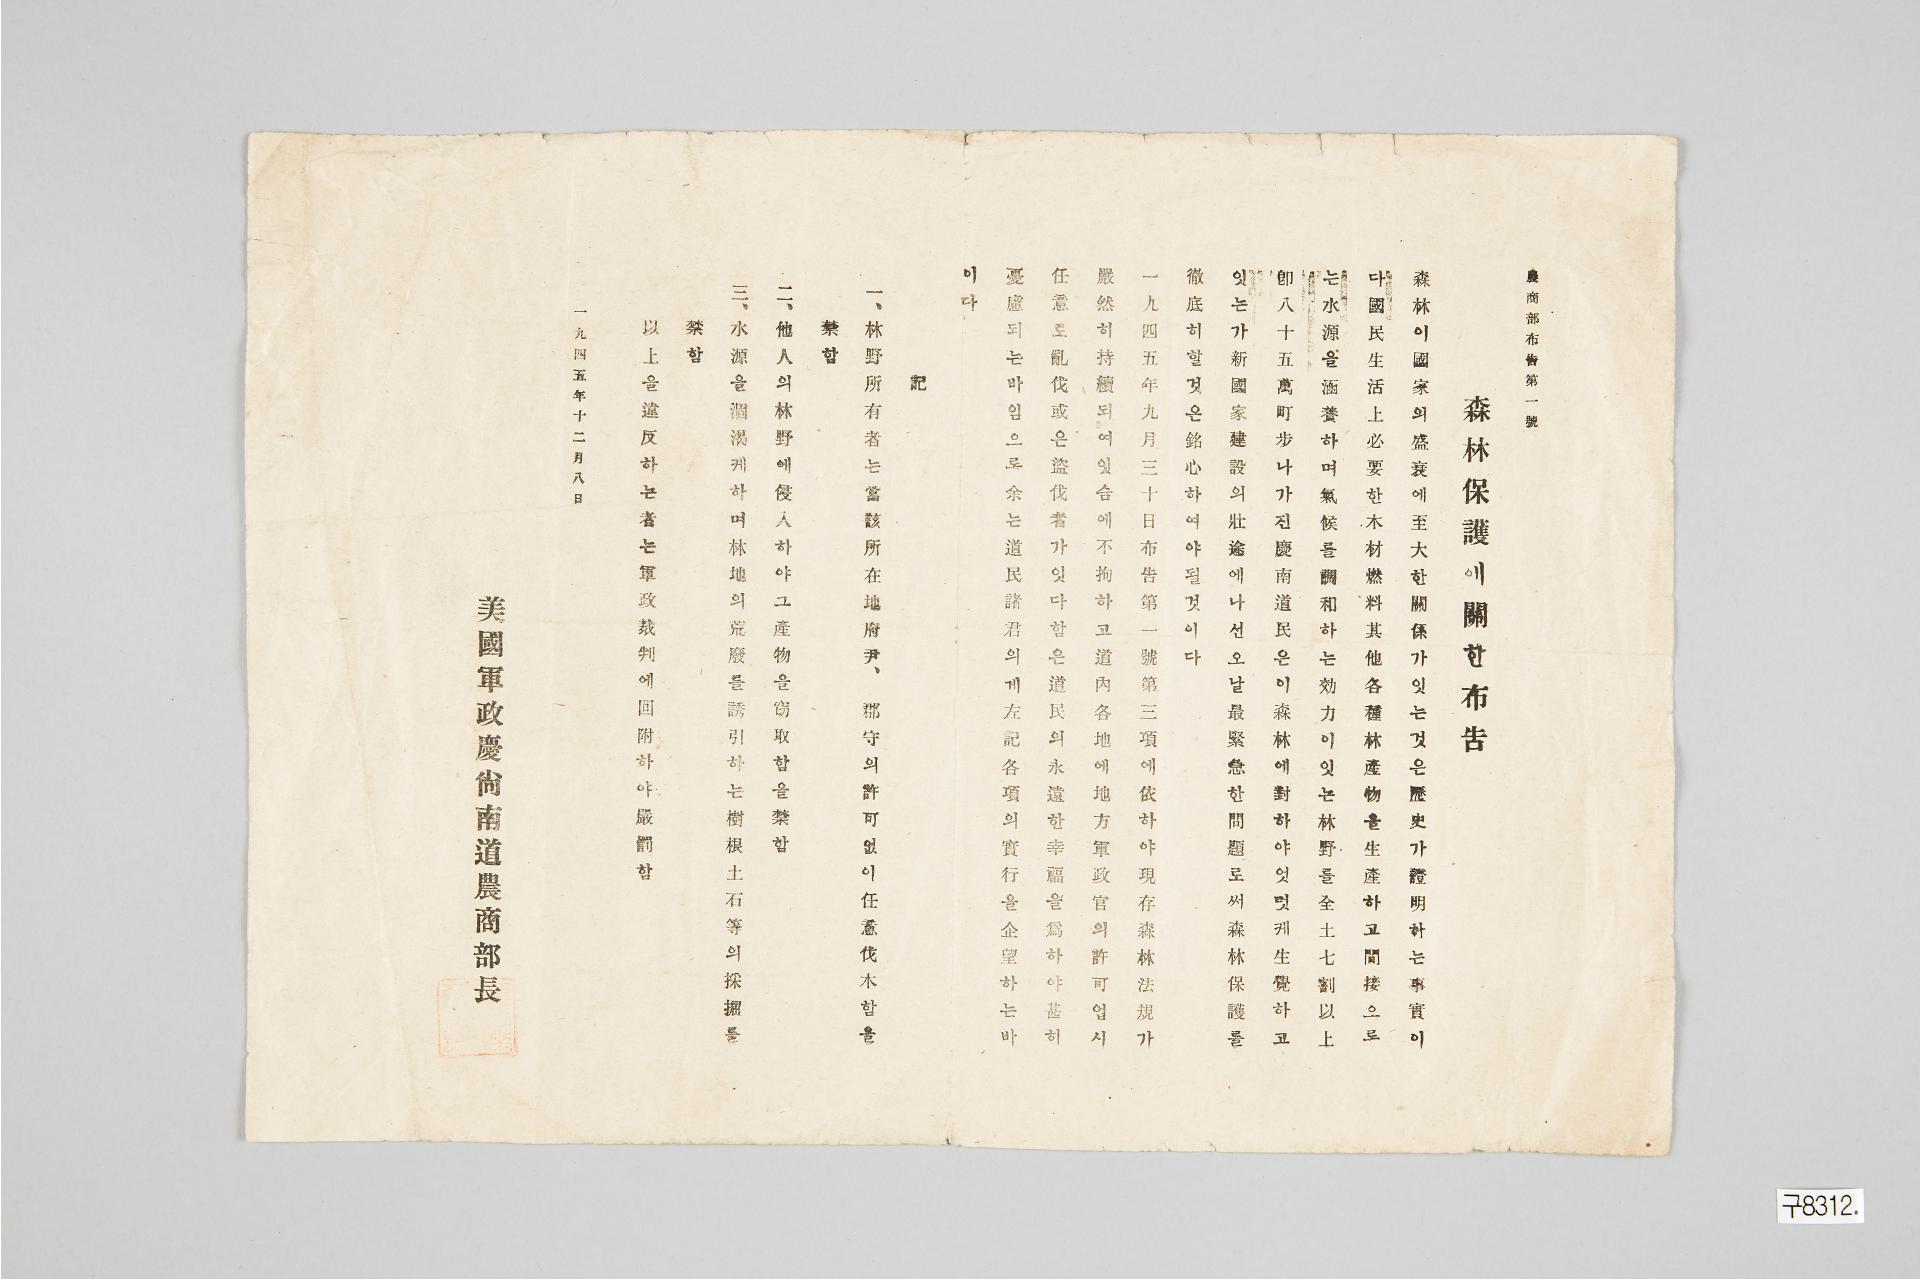 農商部布告第一號
森林保護에關한布告
森林이國家의盛衰에至大한關係가잇는것은歷史가證明하는事實이
다國民生活上必要한木材燃料其他各種林產物을生產하고間接으로
는水源을涵養하며氣候를調和하는効力이잇는林野를全土七割以上
卽八十五萬町步나가진慶南道民은이森林에對하야엇덧케生覺하고
잇는가新國家建設의壯途에나선오날最緊急한問題로써森林保護를
徹底히할것은銘心하여야될것이다
一九四五年九月三十日布告第一號第三項에依하야現存森林法規가
嚴然히持續되여잇슴에不拘하고道內各地에地方軍政官의許可업시
任意로亂伐或은盜伐者가잇다함은道民의永遠한幸福을爲하야甚히
憂慮되는바임으로余는道民諸君의게左記各項의實行을企望하는바
이다
記
一、林野所有者는當該所在地府尹、郡守의許可없이任意伐木함을
禁함
二、他人의林野에侵入하야그產物을窃取함을禁함
三、水源을涸渴케하며林地의荒廢를誘引하는樹根土石等의採掘를
禁함
以上을違反하는者는軍政裁判에回附하야嚴罰함
一九四五年十二月八日
美國軍政慶尙南道農商部長
구8312.